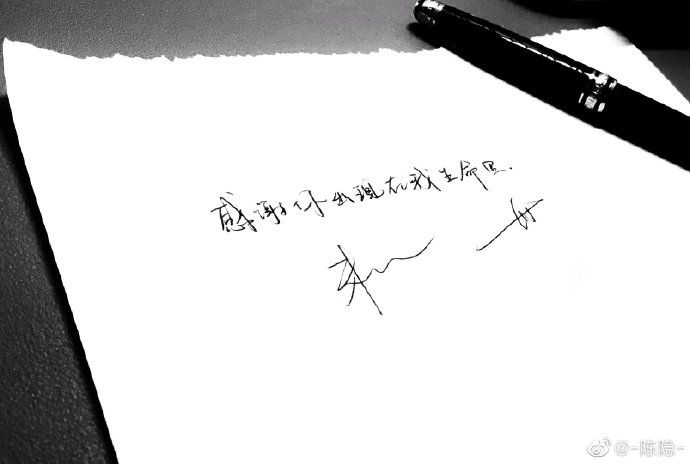 感谢你出现在我生命里.
@-陈隐-